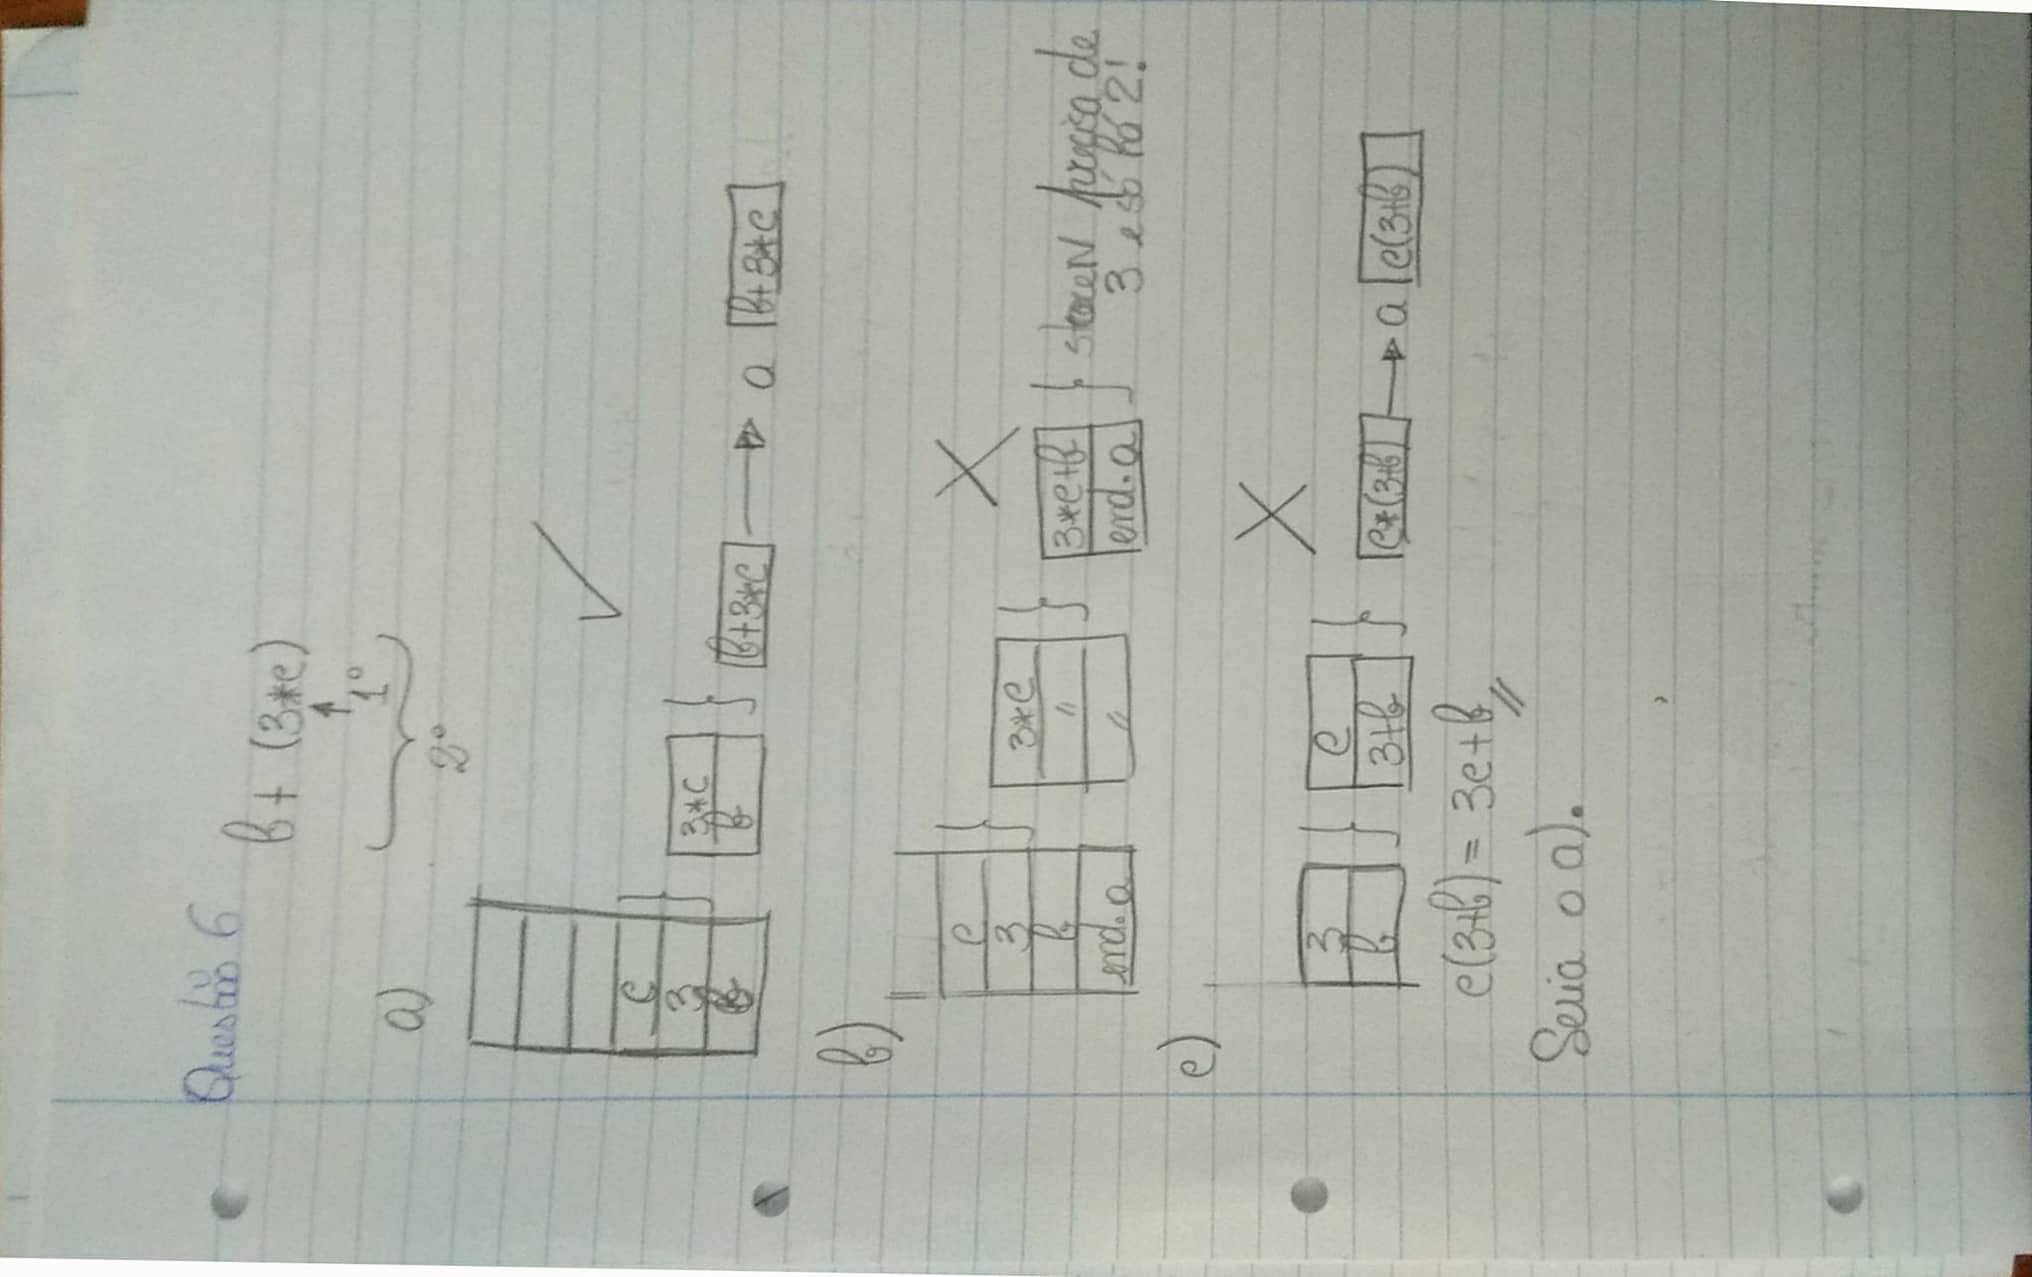 Questão 6
b + (3*c)
1º
2º
a)
c
3
b
3*c
b
b+3*c
a
b+3*c
b)
c
3
b
end. a
3*c
"
"
3*c+b
end. a
storeN precisa de
3 e só há 2!
c)
3
b
c
3+b
c*(3+b)
a
c(3+b)
c(3+b) = 3c+b//
Seria o a).